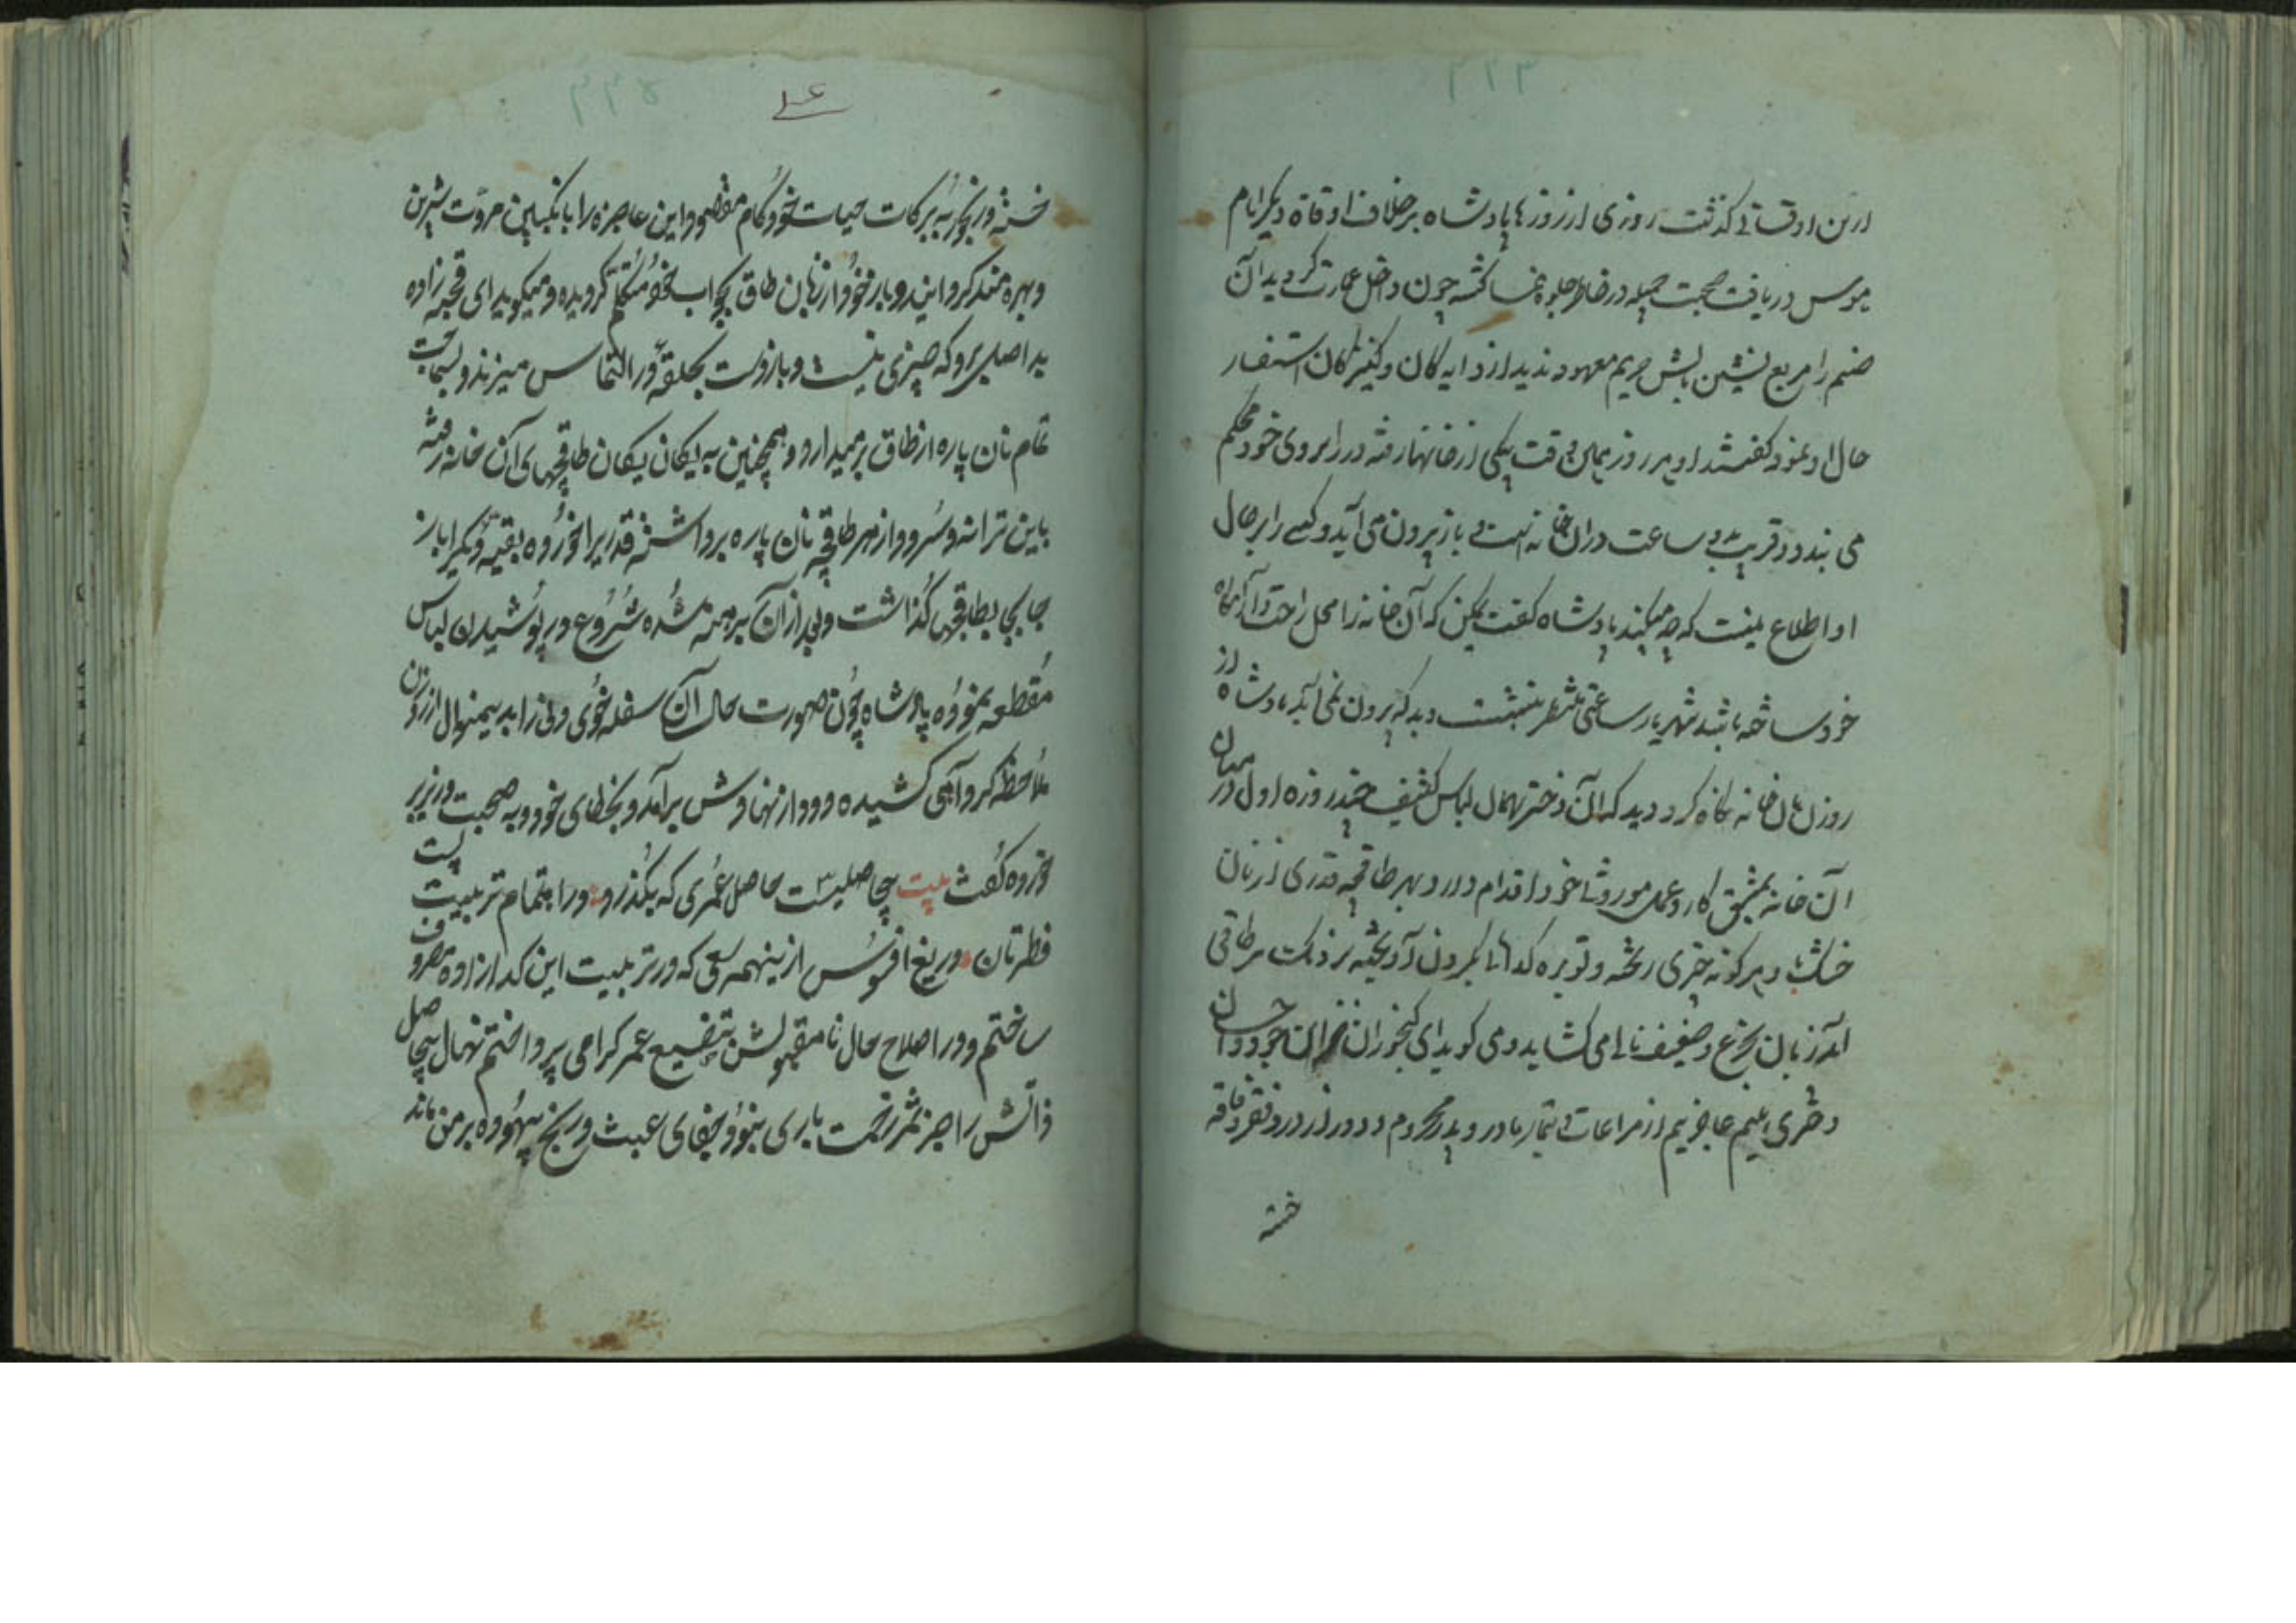 ازین اوقاتی گذشت روزی از روزها پادشاه برخلاف اوقات دیگر ایام
هوس دریافت صحبت جمیله در خاطر جلوه نما گشته چون داخل عمارت گردید آن
صنم را مربع نشین بالش حریم معهود ندید از دایه گان و کنیزکان استفسار
حال او نمود گفتند او هر روز بهمین وقت بیکی از خانها رفته در را بروی خود محکم
می بندد و قریب دو ساعت در ان خانه است و باز بیرون می آید و کسی را بر حال
او اطلاع نیست که چه میکند پادشاه گفت یمکن که آن خانه را محل راحت و آرامگاه
خود ساخته باشد شهریار ساعتی منتظر بنشست دید که بیرون نمی آید پادشاه از
روزن آن خانه نگاه کرد دید که آن دختر بهمان لباس کثیف چند روزه اول در میان
آن خانه بمشق کار و عمل موروثی خود اقدام دارد و بهر طاقچه قدری از نان
خشک و هر گونه چیزی ریخته و توبره گدایی بگردن آویخته نزدیک هر طاقی
آمد زبان بجزع ضعیف نالی می کشاید و می گوید ای
دختری یتیم عاجزیم از مراعات و تیمار مادر و پدر محروم و دور از در و فقر و فاقه
خسته
۱۶
خسته و رنجور به برکات حیات خود کام مقصود این عاجزه را بانگبین مروت شیرین
و بهره مند کرد این و بار خود از زبان طاق بجواب خود متکلم گردیده و میگوید ای قحبه زاده
بد اصل برو که چیزی نیست و باز دست بحلقهٔ در التماس میزند و بسماجت
تمام نان پاره از طاق برمیدارد و همچنین به یکان یکان طاقچهای آن خانه رفته
باین ترانه و سرود از هر طاقچه نان پاره برداشته قدریرا خورده بقیه دیگر را باز
جابجا بطاقچها گذاشت و بعد از آن برهنه شده شروع در پوشیدن لباس
مقطعه نموده پادشاه چون صورت حال آن سفله خوی دنی زا بدینمنوال از روزن
ملاحظه کرد آهی کشیده و دود از نهادش برآمد و بخطای خود و به صحبت وزیر پی
برده گفت بیت بیحاصلیست حاصل عمری که بگذرد در اهتمام تربیت پست
فطرتان دریغ افسوس ازینهمه سعی که در تربیت این گدازاده مصروف
ساختم و در اصلاح حال نامقبولش بتضییع عمر گرامی پرداختم نهال بیحاصل
ذاتش را جز ثمر زحمت باری نبود و جفای عبث و رنج بیهوده بر من ماند